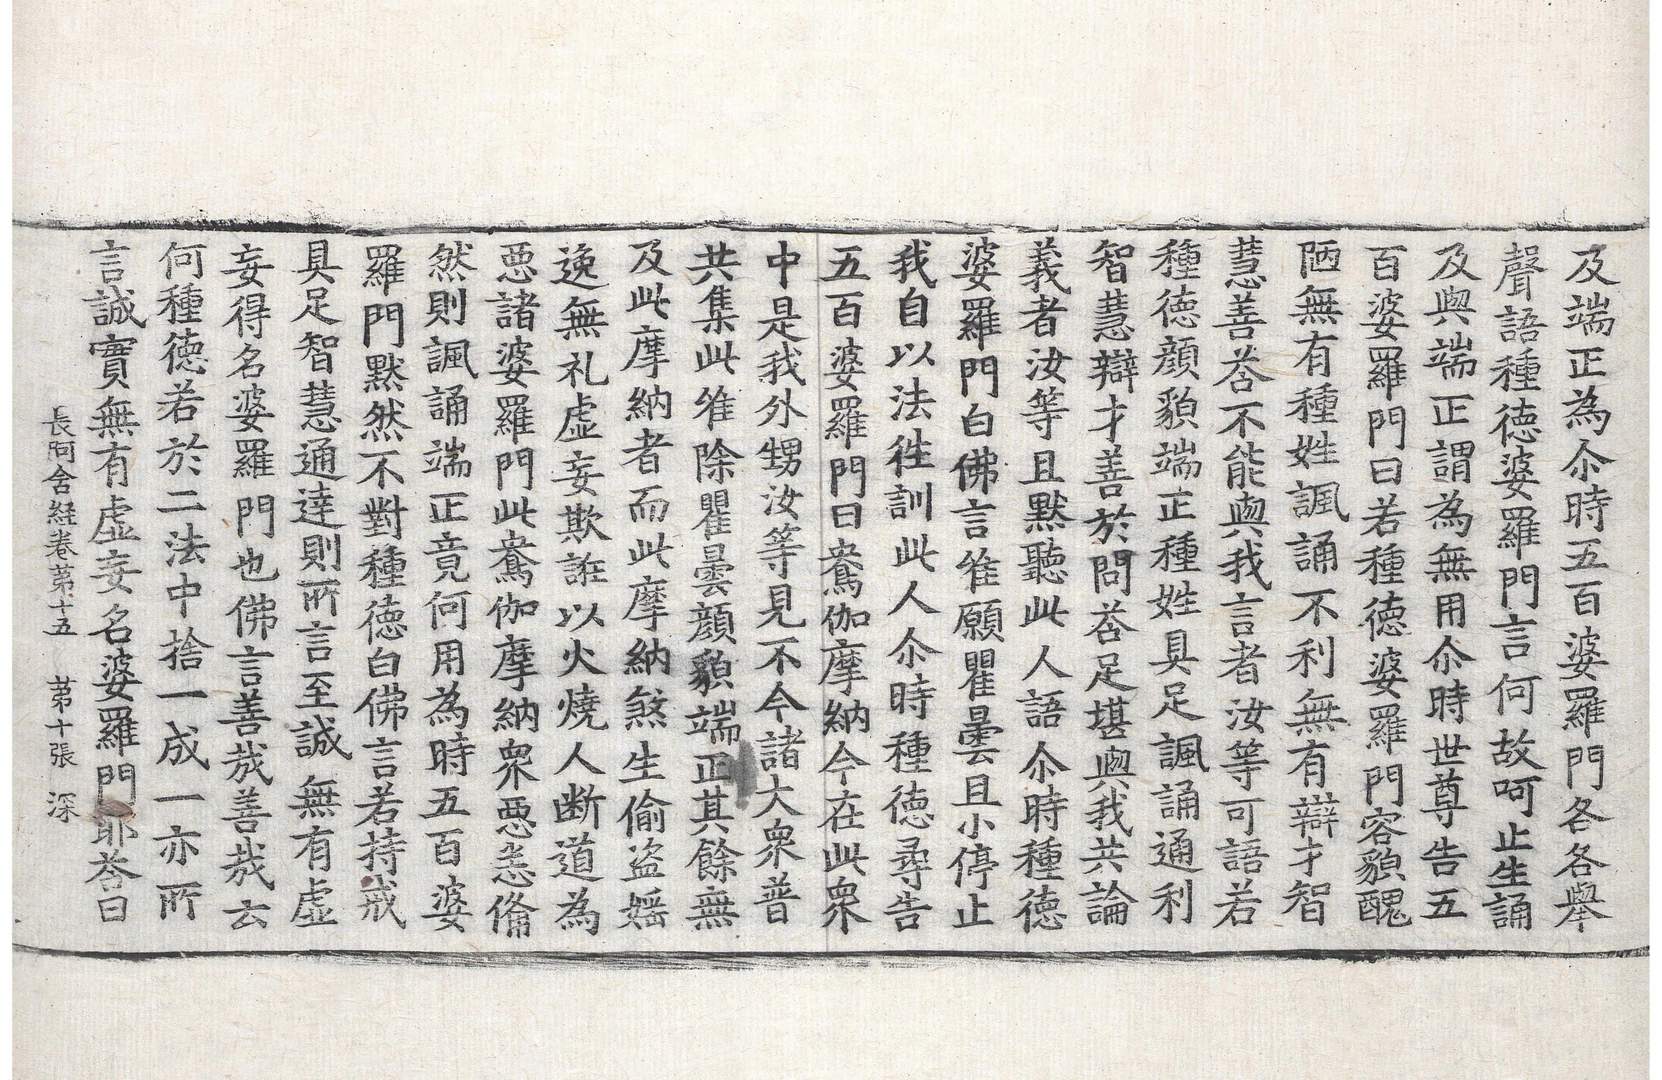 及端正為尒時五百婆羅門各各舉
聲語種德婆羅門言何故呵止生誦
及與端正謂為無用尒時世尊告五
百婆羅門曰若種德婆羅門容貌醜
陋無有種姓諷誦不利無有辯才智
慧善荅不能與我言者汝等可語若
種德顏貌端正種姓具足諷誦通利
智慧辯才善於問荅足堪與我共論
義者汝等且默聽此人語尒時種德
婆羅門白佛言唯願瞿曇且小停止
我自以法往訓此人尒時種德尋告
五百婆羅門曰鴦伽摩納今在此眾
中是我外甥汝等見不今諸大眾普
共集此唯除瞿曇顏貌端正其餘無
及此摩納者而此摩納煞生偷盜婬
逸無礼虛妄欺誑以火燒人断道為
惡諸婆羅門此鴦伽摩納眾惡悉俻
然則諷誦端正竟何用為時五百婆
羅門默然不對種德白佛言若持戒
具足智慧通達則所言至誠無有虛
妄得名婆羅門也佛言善哉善哉云
何種德若於二法中捨一成一亦所
言誠實無有虛妄名婆羅門耶荅曰
長阿含經卷苐十五　苐十張　深